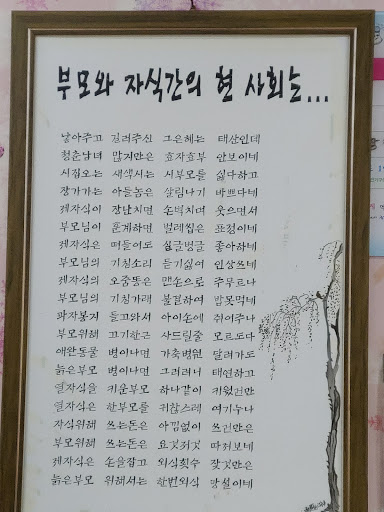 부모와 자식간의 현 사회는...
낳아주고 길러주신 그은혜는 태산인데
청춘남녀 많지만은 효자효부 안보이네
시집오는 새색시는 시부모를 싫다하고
장가가는 아들놈은 살림나기 바쁘다네
제자식이 장난치면 손벽치며 웃으면서
부모님이 훈계하면 벌레씹은 표정이네
제자식은 떠들어도 싱글벙글 좋아하네
부모님의 기침소리 듣기싫어 인상쓰네
제자식의 오줌똥은 맨손으로 주무르나
부모님의 기침가래 불결하여 밥못먹네
과자봉지 들고와서 아이손에 쥐어주나
부모위해 고기한근 사드릴줄 모르도다
애완동물 병이나면 가축병원 달려가도
늙은부모 병이나면 그러려니 태연하고
열자식을 키운부모 하나같이 키웠건만
열자식은 한부모를 귀찮스레 여기누나
자식위해 쓰는돈은 아낌없이 쓰련만은
부모위해 쓰는돈은 요것저것 따져보네
제자식은 손을잡고 외식횟수 잦것만은
늙은부모 위해서는 한번외식 망설이네